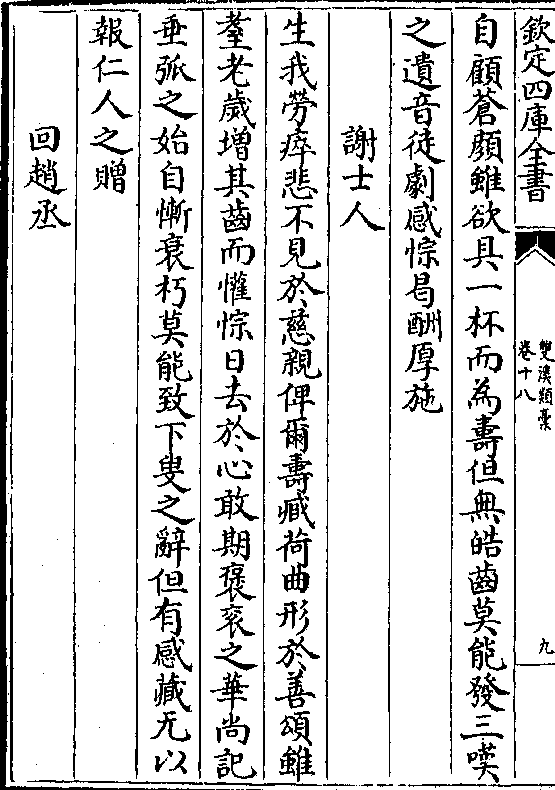 欽定四庫全書
雙溪類藁
卷十八
九
自顧蒼顔雖欲具一杯而為壽但無皓齒莫能發三嘆
之遺音徒劇感悰曷酬厚施
謝士人
生我勞瘁悲不見於慈親俾爾壽臧荷曲形於善頌雖
耋老歲增其齒而懽悰日去於心敢期褒衮之華尚記
垂弧之始自慚衰朽莫能致下叟之辭但有感藏无以
報仁人之贈
回趙丞